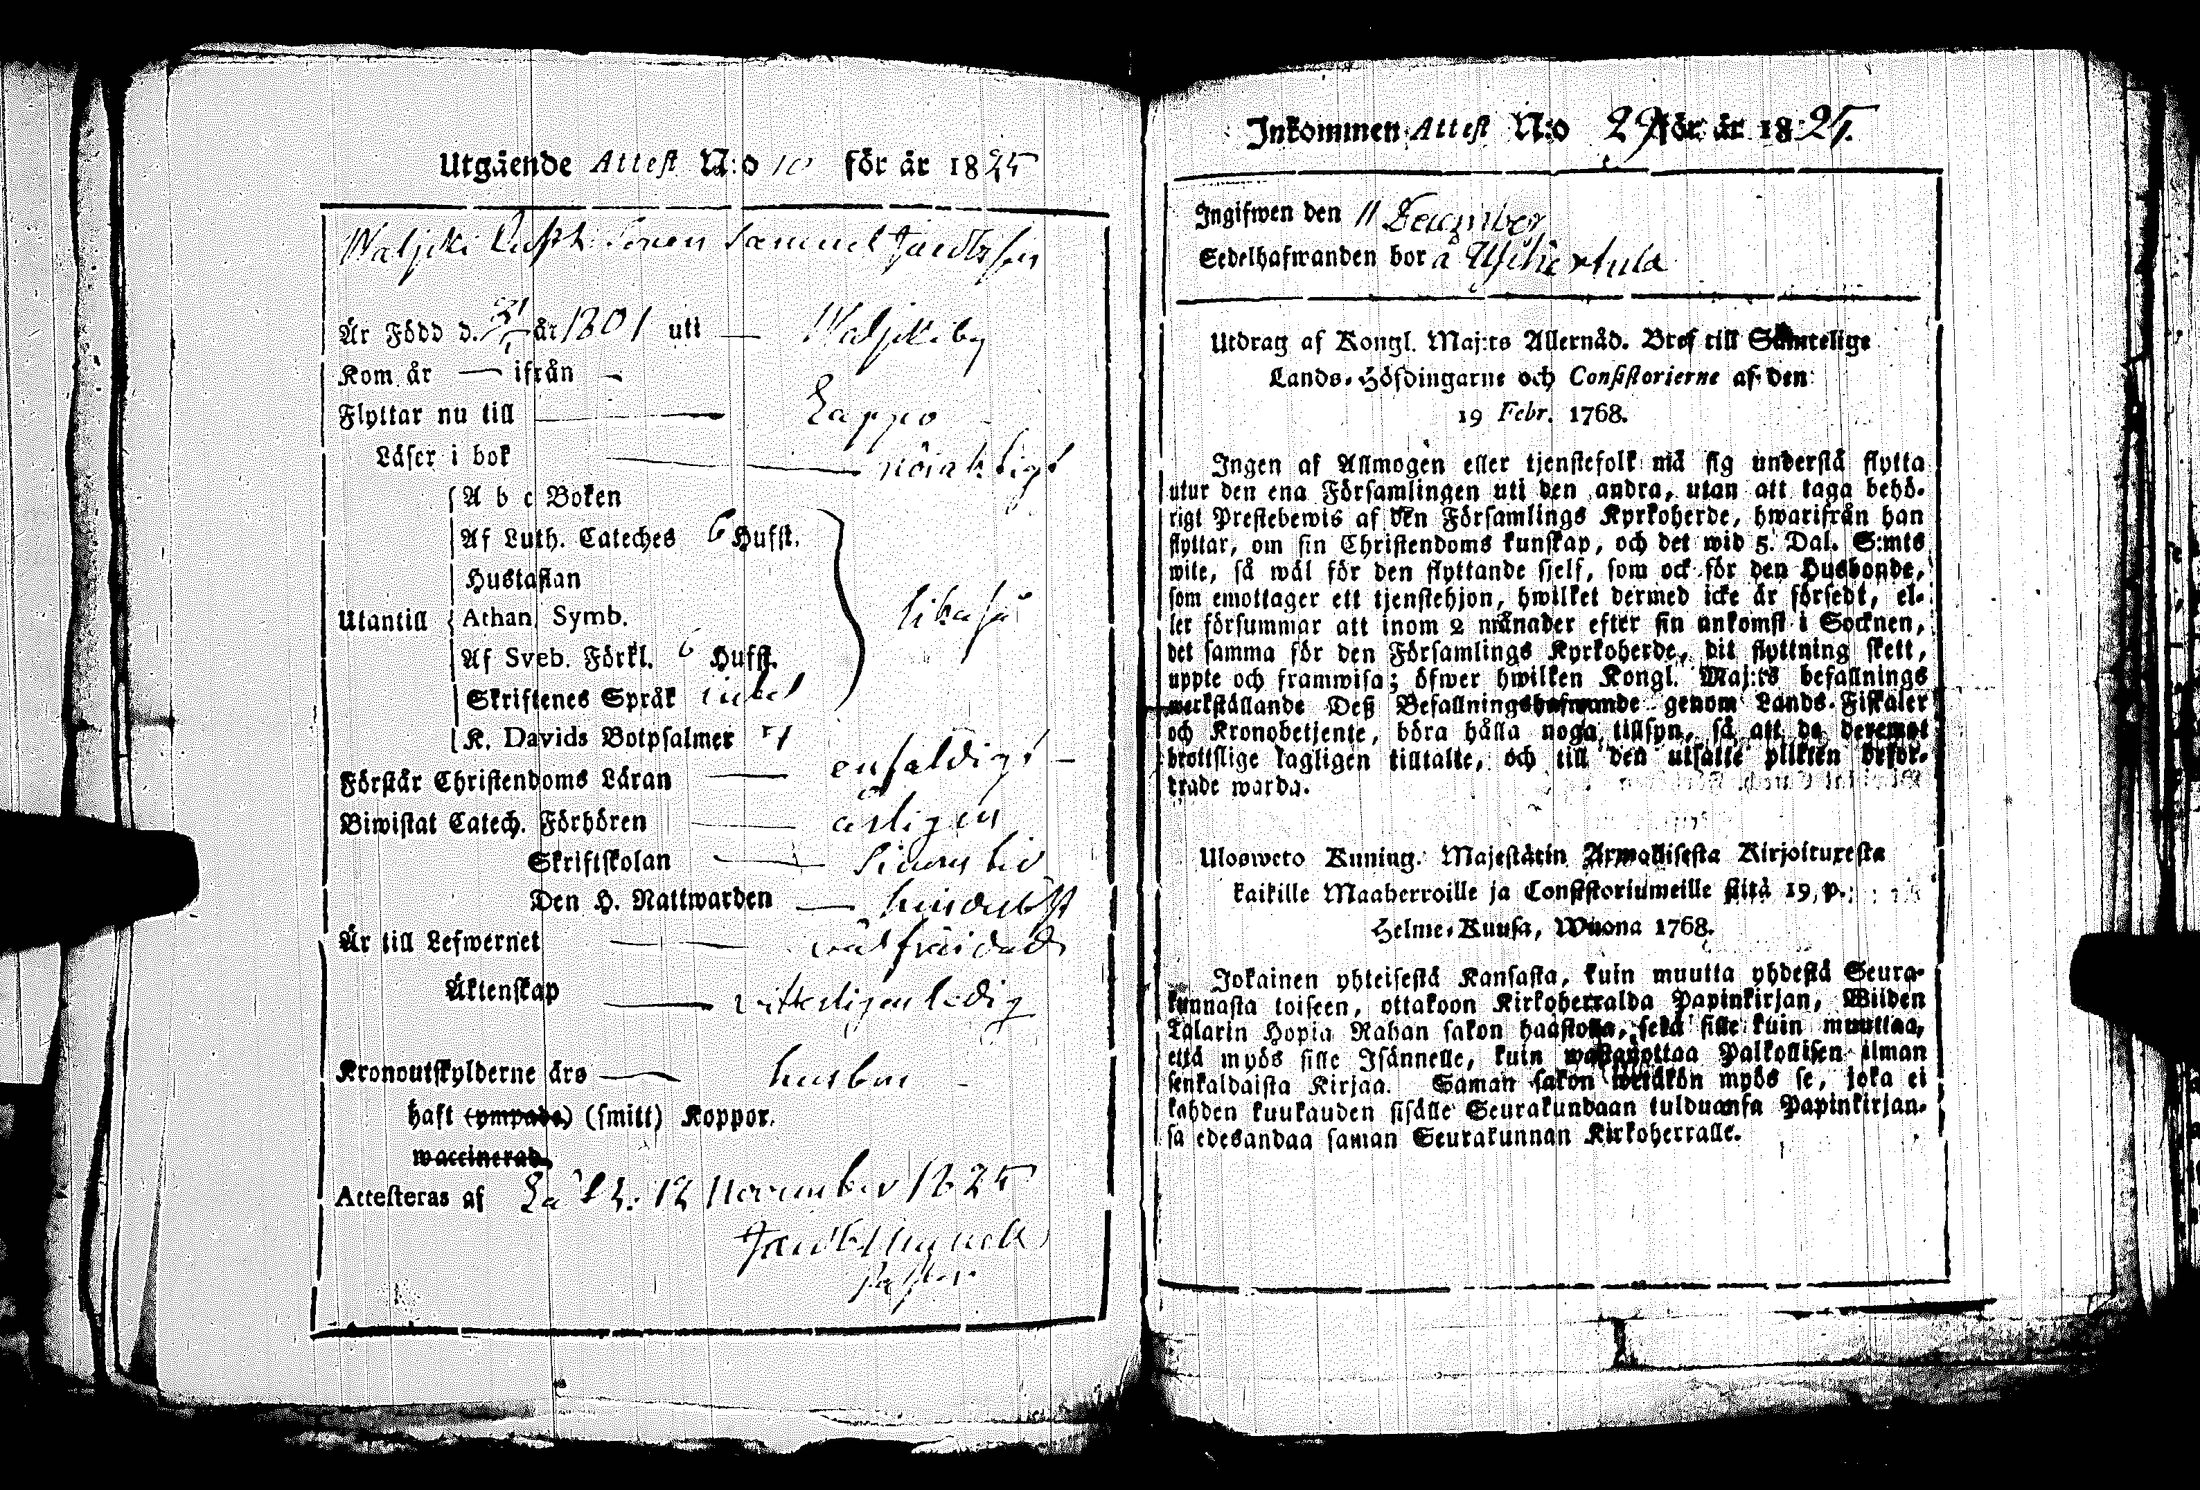 Utgående Attest N:o 10 för år 1825
Samuel Jacobsson
Är Född d. 31/1 år 1801 uti — Waljkki by
Kom år — ifrån —
Flyttar nu till — Lappo
Läser i bok — nöjaktigt
A b c Boken
Af Luth. Cateches 6 Hufst.
Hustaflan
Utantill Athan. Symb. likaså
Af Sveb. Förkl. 6 Hufst.
Skriftenes Språk
K. Davids Botpsalmer
Förstår Christendoms Läran — enfaldigt —
Biwistat Catech. Förhören — årligen
Skriftskolan — i sinom tid
Den H. Nattwarden — hinderlöst
Är till Lefwernet — wälfräjdad
Äktenskap — witterligen ledig
Kronoutskylderne års — husbon —
haft (ympade) (smitt) Koppor.
waccinerad,
Attesteras af 12 November 1825
Jacob
Pastor
Inkommen Attest N:o 29 för år 1825.
Ingifwen den 11 December
Sedelhafwanden bor å
Utdrag af Kongl. Maj:ts Allernåd. Bref till Samtelige
Lands-Höfdingarne och Consistorierne af den
19 Febr. 1768.
Ingen af Allmogen eller tjenstefolk må sig understå flytta
utur den ena Församlingen uti den andra, utan att taga behö-
rigt Prestebewis af den Församlings Kyrkoherde, hwarifrån han
flyttar, om sin Christendoms kunskap, och det wid 5. Dal. S:mts
wite, så wäl för den flyttande sjelf, som ock för den Husbonde,
som emottager ett tjenstehjon, hwilket dermed icke är försedt, el-
ler försummar att inom 2 månader efter sin ankomst i Socknen,
det samma för den Församlings Kyrkoherde, dit flyttning skett,
uppte och framwisa; öfwer hwilken Kongl. Maj:ts befallnings
werkställande Deß Befallningshafwande genom Lands-Fiskaler
och Kronobetjente, böra hålla noga tillsyn, så att de deremot
brottslige lagligen tilltalte, och till den utsatte plikten befor-
trade warda.
Ulosweto Kuning. Majestätin Armollisesta Kirjoituxesta
kaikille Maaherroille ja Consistoriumeille siitä 19, p.
Helme-Kuusa, Wuona 1768.
Jokainen yhteisestä Kansasta, kuin muutta yhdestä Seura-
kunnasta toiseen, ottakoon Kirkoherralda Papinkirjan, Wiiden
Talarin Hopia Rahan sakon haastolla, sekä sille kuin muuttaa,
että myös sille Isännelle, kuin wastanottaa Palkollisen ilman
senkaldaista Kirjaa. Saman sakon wetäkön myös se, joka ei
kahden kuukauden sisälle Seurakundaan tulduansa Papinkirjan-
sa edesandaa saman Seurakunnan Kirkoherralle.